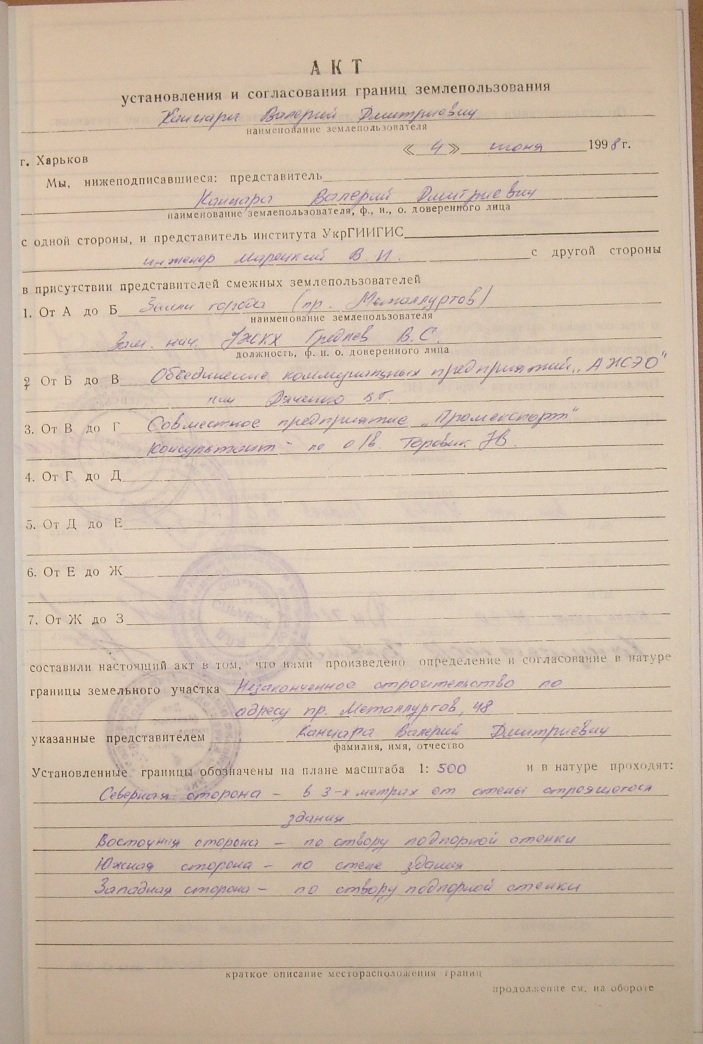 АКТ
установления и согласования границ землепользования
Канцара Валерий Дмитриевич
наименование землепользователя
г. Харьков « 4 » июня 1998 г.
Мы, нижеподписавшиеся: представитель
Канцара Валерий Дмитриевич
наименование землепользователя, ф., и., о. доверенного лица
с одной стороны, и представитель института УкрГИИГИС
инженер В. И. с другой стороны
в присутствии представителей смежных землепользователей
1. От А до Б Земли города (пр. Металлургов)
наименование землепользователя
Зам. нач. УЖКХ В. С.
должность, ф. и. о. доверенного лица
2 От Б до В Объединение коммунальных предприятий
3. От В до Г Совместное предприятие „Промекспорт"
Консультант - по
4. От Г до Д
5. От Д до Е
6. От Е до Ж
7. От Ж до З
составили настоящий акт в том, что ними произведено определение и согласование в натуре
границы земельного участка Незаконченное строительство по
адресу пр. Металлургов, 48
указанные представителем Канцара Валерий Дмитриевич
фамилия, имя, отчество
Установленные границы обозначены на плане масштаба 1: 500 и в натуре проходят:
Северная сторона - в 3-х метрах от стены строящегося
здания
Восточная сторона - по створу подпорной стенки
Южная сторона - по стене здания
Западная сторона - по створу подпорной стенки
краткое описание месторасположения границ
продолжение ся. на обороте